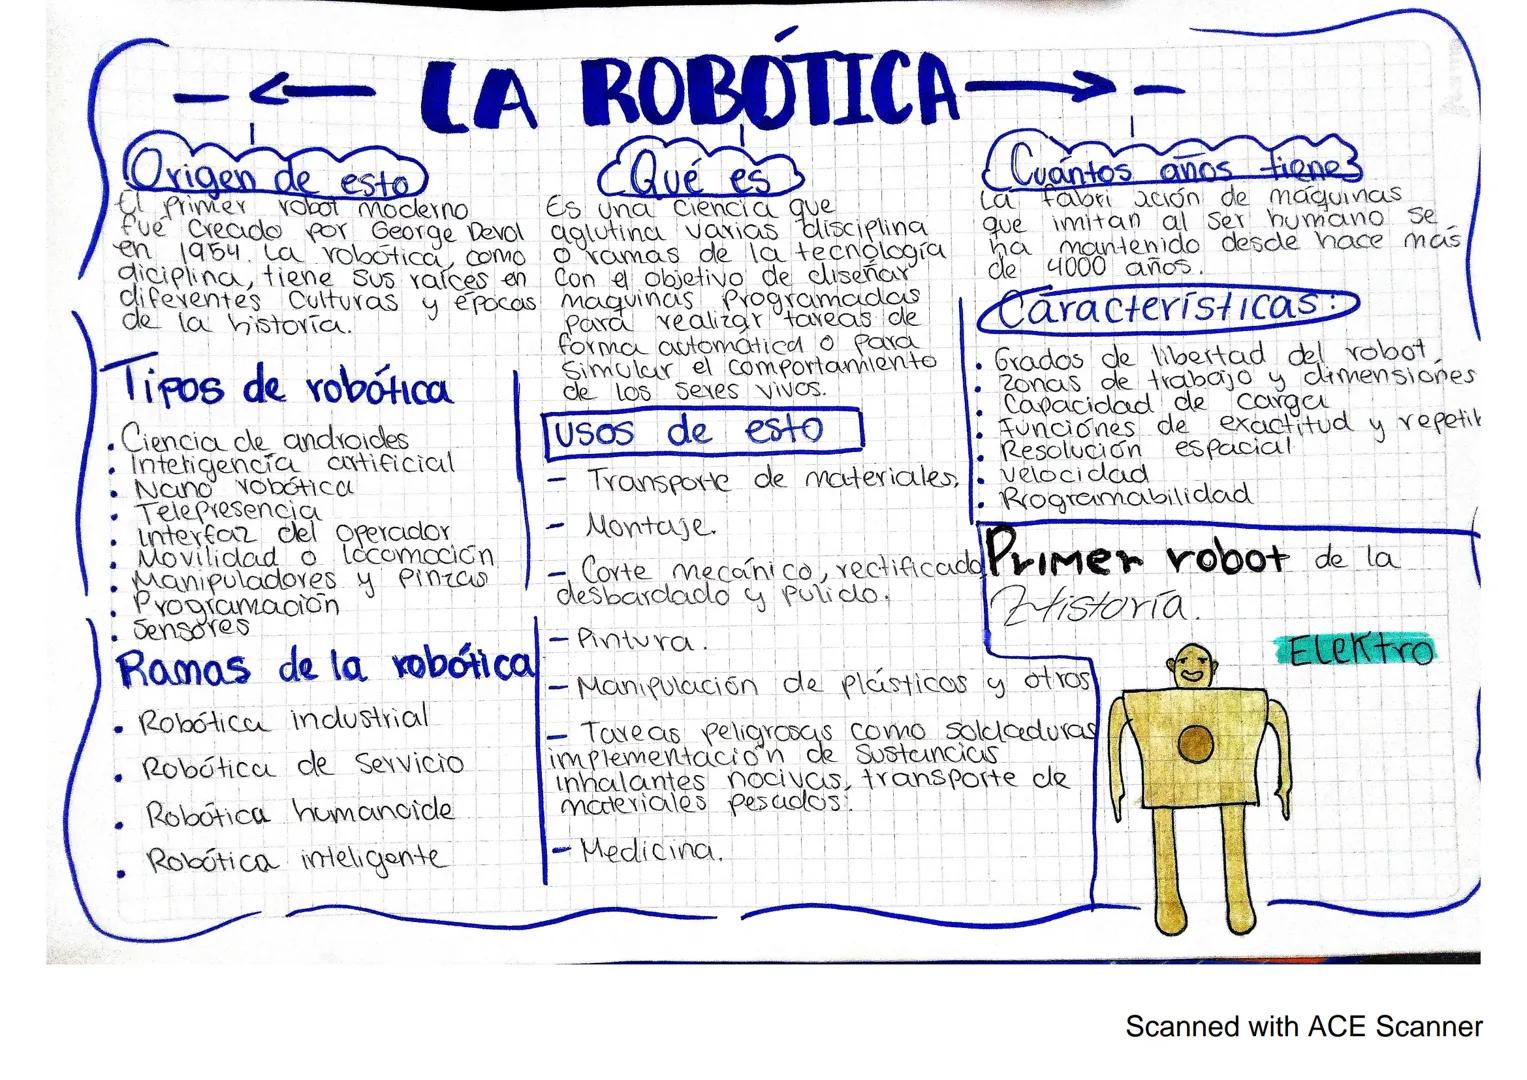 LA ROBÓTICA
Origen de esto
El primer robot moderno
fué creado por George Devol
en 1954. La robótica, como
diciplina, tiene sus raíces en
diferentes culturas y épocas
de la historia.
Tipos de robótica
• Ciencia de androides
• Inteligencia artificial
• Nano robótica
• Telepresencia
• Interfaz del operador
• Movilidad o locomoción
• Manipuladores y pinzas
• Programación
• Sensores
Ramas de la robótica
• Robótica industrial
• Robótica de servicio
• Robótica humanoide
• Robótica inteligente
Qué es
Es una ciencia que
aglutina varias disciplina
o ramas de la tecnología
con el objetivo de diseñar
maquinas programadas
para realizar tareas de
forma automática o para
simular el comportamiento
de los seres vivos.
usos de esto
- Transporte de materiales.
- Montaje.
- Corte mecánico, rectificado
desbardado y pulido.
- Pintura.
- Manipulación de plásticos y otros
- Tareas peligrosas como soldaduras
implementación de sustancias
inhalantes nocivas, transporte de
materiales pesados.
- Medicina.
Cuántos años tiene
La fabricación de máquinas
que imitan al ser humano se
ha mantenido desde hace más
de 4000 años.
Características:
• Grados de libertad del robot
• zonas de trabajo y dimensiones
• Capacidad de carga
• Funciones de exactitud y repetit
• Resolución espacial
• velocidad
• Programabilidad
Primer robot de la
Historia.
Elektro
Scanned with ACE Scanner